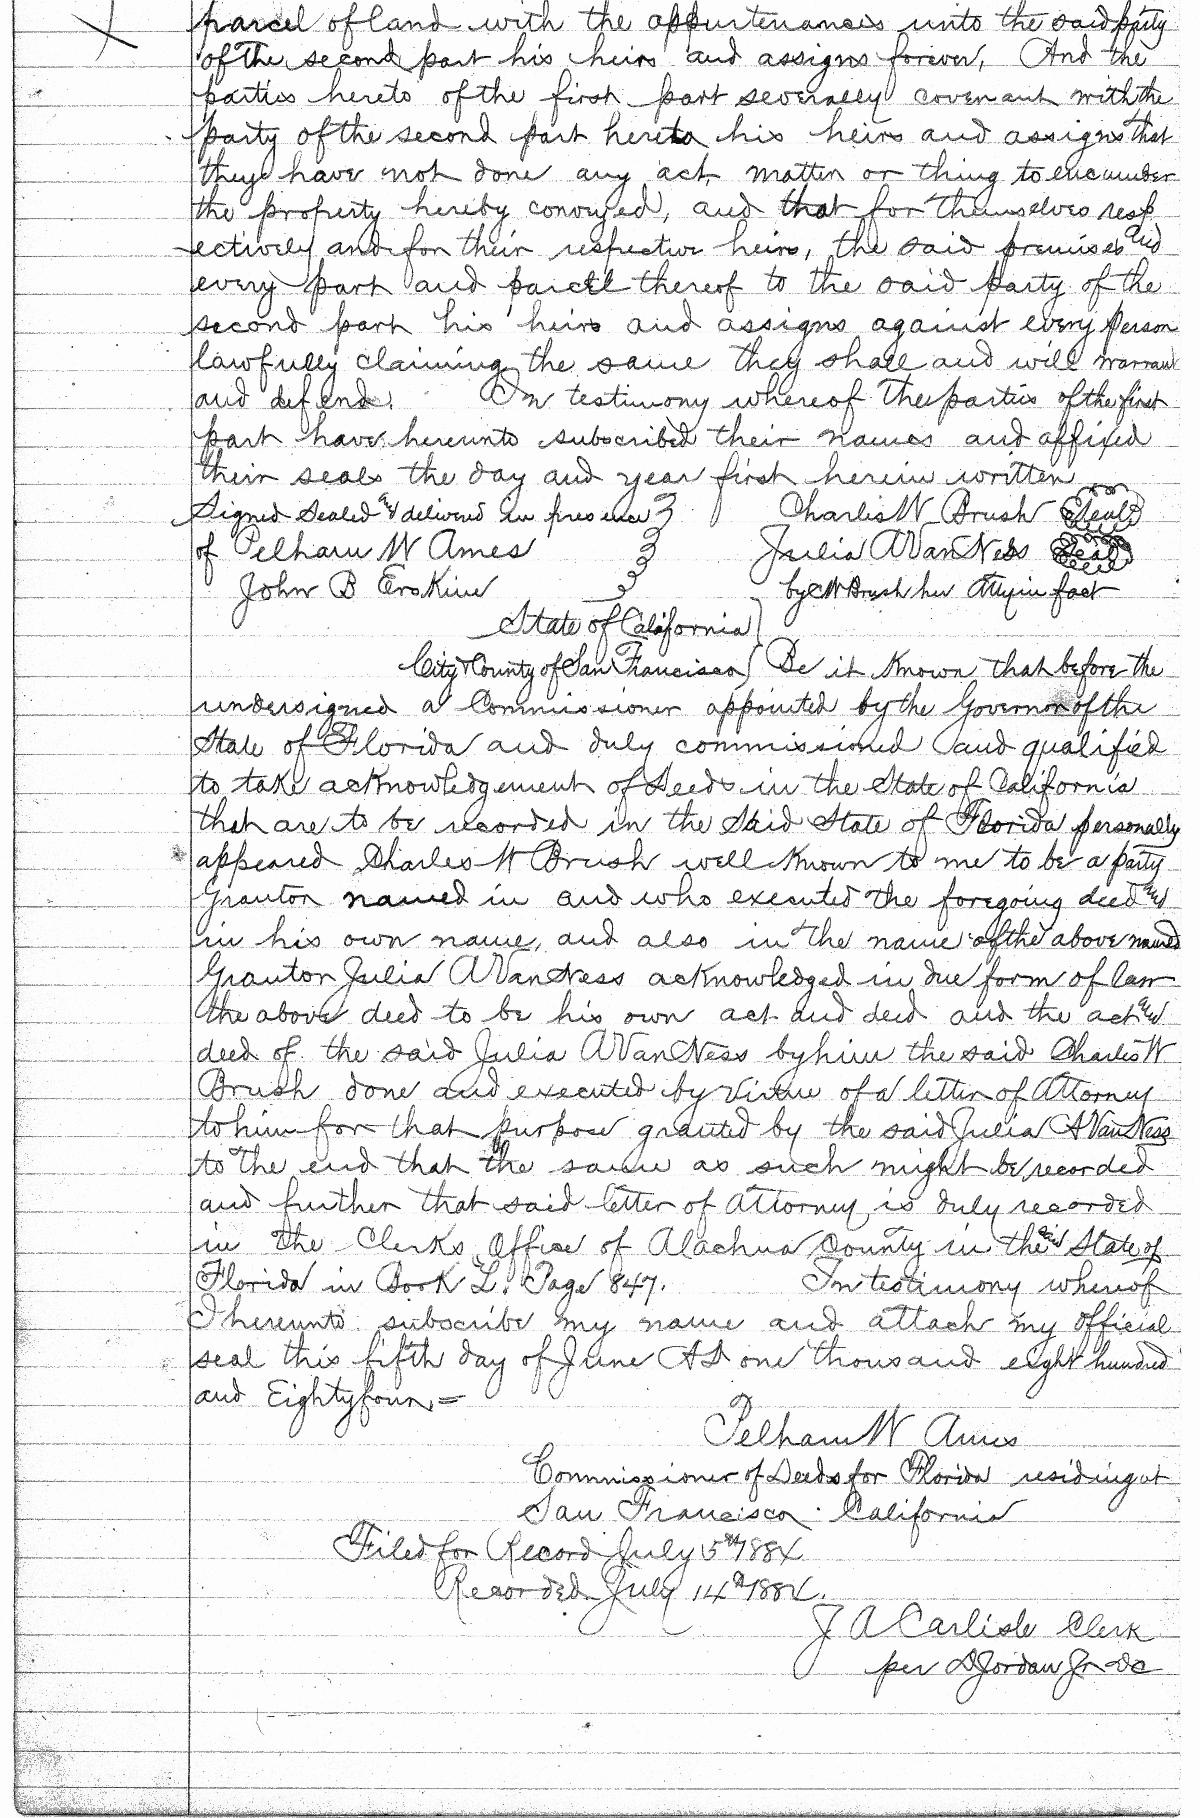 parcel of land with the appurtenances unto the said party
of the second part his heirs and assigns forever, And the
parties hereto of the first part severally covenant with the
party of the second part hereto his heirs and assigns that
they have not done any act, matter or thing to encumber
the property hereby conveyed, and that for themselves resp
ectively and for their respective heirs, the said premises and
every part and parcel thereof to the said party of the
second part his heirs and assigns against every person
lawfully claiming the same they shall and will warrant
and defend. In testimony whereof the parties of the first
part have hereunto subscribed their names and affixed
their seals the day and year first herein written
Signed Sealed and delivered in presence Charles W Brush Seal
of Pelham W Ames Julia A Van Ness Seal
John B Erskine by C W Brush her Atty in fact
State of California
City & County of San Francisco Be it Known that before the
undersigned a Commissioner appointed by the Governor of the
State of Florida and duly commissioned and qualified
to take acknowledgement of Deeds in the State of California
that are to be recorded in the Said State of Florida personally
appeared Charles W Brush well known to me to be a party
Grantor named in and who executed the foregoing deed and
in his own name, and also in the name of the above named
Grantor Julia A Van Ness acknowledged in due form of law
the above deed to be his own act and deed and the act and
deed of the said Julia A Van Ness by him the said Charles W
Brush done and executed by virtue of a letter of Attorney
to him for that purpose granted by the said Julia A Van Ness
to the end that the same as such might be recorded
and further that said letter of Attorney is duly recorded
in the Clerks Office of Alachua County in the said State of
Florida in Book L. Page 847. In testimony whereof
I hereunto subscribe my name and attach my official
seal this fifth day of June AD one thousand eight hundred
and Eightyfour, =
Pelham W Ames
Commissioner of Deeds for Florida residing at
San Francisco California
Filed for Record July 5th 1884
Recorded July 14th 1884.
J A Carlisle Clerk
per D Jordan Jr DC